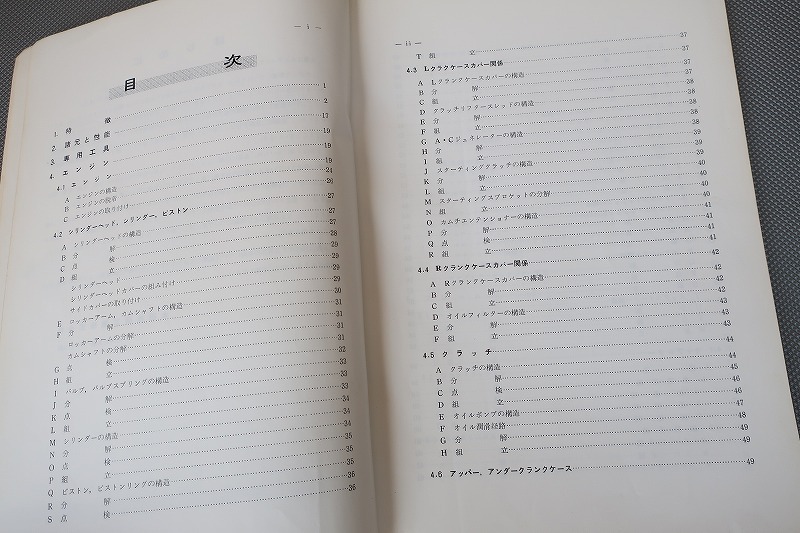 — i —
目 次
1. 特 徴 1
2. 諸元と性能 2
3. 専用工具 17
4. エンジン 19
4.1 エンジン 19
A エンジンの構造 19
B エンジンの脱着 24
C エンジンの取り付け 26
4.2 シリンダーヘッド，シリンダー，ピストン 27
A シリンダーヘッドの構造 27
B 分 解 27
C 点 検 28
D 組 立 29
シリンダーヘッド 29
シリンダーヘッドカバーの組み付け 29
サイドカバーの取り付け 30
E ロッカーアーム，カムシャフトの構造 30
F 分 解 31
ロッカーアームの分解 31
カムシャフトの分解 31
G 点 検 31
H 組 立 32
I バルブ，バルブスプリングの構造 33
J 分 解 33
K 点 検 34
L 組 立 34
M シリンダーの構造 34
N 分 解 35
O 点 検 35
P 組 立 35
Q ピストン，ピストンリングの構造 36
R 分 解 36
S 点 検 36
— ii —
T 組 立 37
4.3 Lクラクケースカバー関係 37
A Lクランクケースカバーの構造 37
B 分 解 37
C 組 立 38
D クラッチリフタースレッドの構造 38
E 分 解 38
F 組 立 38
G A・Cジェネレーターの構造 38
H 分 解 39
I 組 立 39
J スターティングクラッチの構造 39
K 分 解 40
L 組 立 40
M スターティングスプロケットの分解 40
N 組 立 41
O カムチエンテンショナーの構造 41
P 分 解 41
Q 点 検 41
R 組 立 41
4.4 Rクランクケースカバー関係 42
A Rクランクケースカバーの構造 42
B 分 解 42
C 組 立 42
D オイルフィルターの構造 43
E 分 解 43
F 組 立 43
4.5 クラッチ 44
A クラッチの構造 44
B 分 解 45
C 点 検 46
D 組 立 46
E オイルポンプの構造 47
F オイル潤滑経路 48
G 分 解 49
H 組 立 49
4.6 アッパー，アンダークランクケース 49